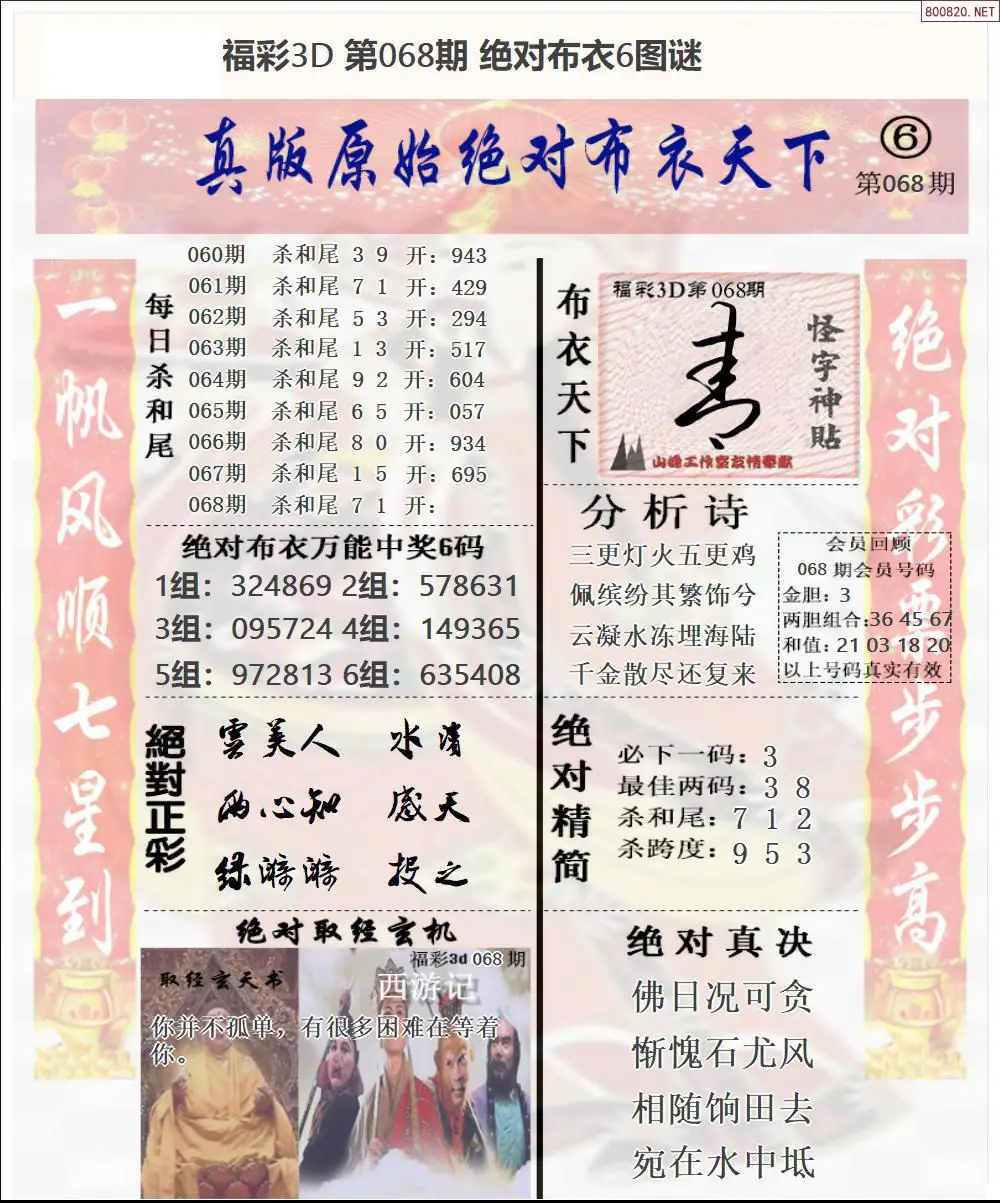 800820.NET
福彩3D 第068期 绝对布衣6图谜
真版原始绝对布衣天下
⑥
第068期
一帆风顺七星到
每日杀和尾
060期 杀和尾 3 9 开：943
061期 杀和尾 7 1 开：429
062期 杀和尾 5 3 开：294
063期 杀和尾 1 3 开：517
064期 杀和尾 9 2 开：604
065期 杀和尾 6 5 开：057
066期 杀和尾 8 0 开：934
067期 杀和尾 1 5 开：695
068期 杀和尾 7 1 开：
绝对布衣万能中奖6码
1组：324869 2组：578631
3组：095724 4组：149365
5组：972813 6组：635408
絕對正彩
雲美人 水清
两心知 感天
绿漪漪 投之
绝对取经玄机
福彩3d 068 期
取经玄天书
西游记
你并不孤单，有很多困难在等着
你。
布衣天下
福彩3D第068期
怪字神贴
山峰工作室友情奉献
分析诗
三更灯火五更鸡
佩缤纷其繁饰兮
云凝水冻埋海陆
千金散尽还复来
会员回顾
068 期会员号码
金胆：3
两胆组合:36 45 67
和值：21 03 18 20
以上号码真实有效
绝对精简
必下一码：3
最佳两码：3 8
杀和尾：7 1 2
杀跨度：9 5 3
绝对真决
佛日况可贪
惭愧石尤风
相随饷田去
宛在水中坻
绝对彩票步步高